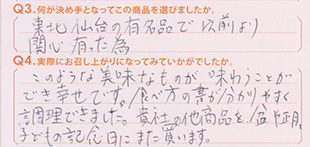 Q3.何が決め手となってこの商品を選びましたか。
東北仙台の有名品で以前より
関心有った為
Q4.実際にお召し上がりになってみていかがでしたか。
このような美味なものが味わうことが
でき幸せです。食べ方の書が分かりやすく
調理できました。貴社の他商品を、盆や正月、
子どもの記念日にまた買います。